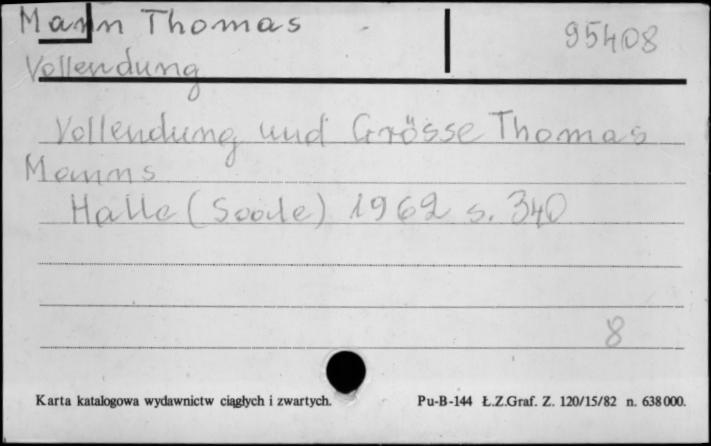 Mann Thomas 95408
Vollendung
Vollendung und Grösse Thomas
Manns
Halle (Saale) 1962 s. 340
8
Karta katalogowa wydawnictw ciągłych i zwartych. Pu-B-144 Ł.Z.Graf. Z. 120/15/82 n. 638 000.